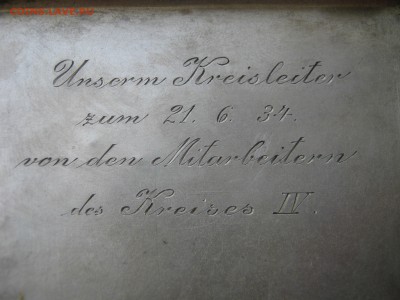 Unserm Kreisleiter
zum 21. 6. 34.
von den Mitarbeitern
des Kreises IV.